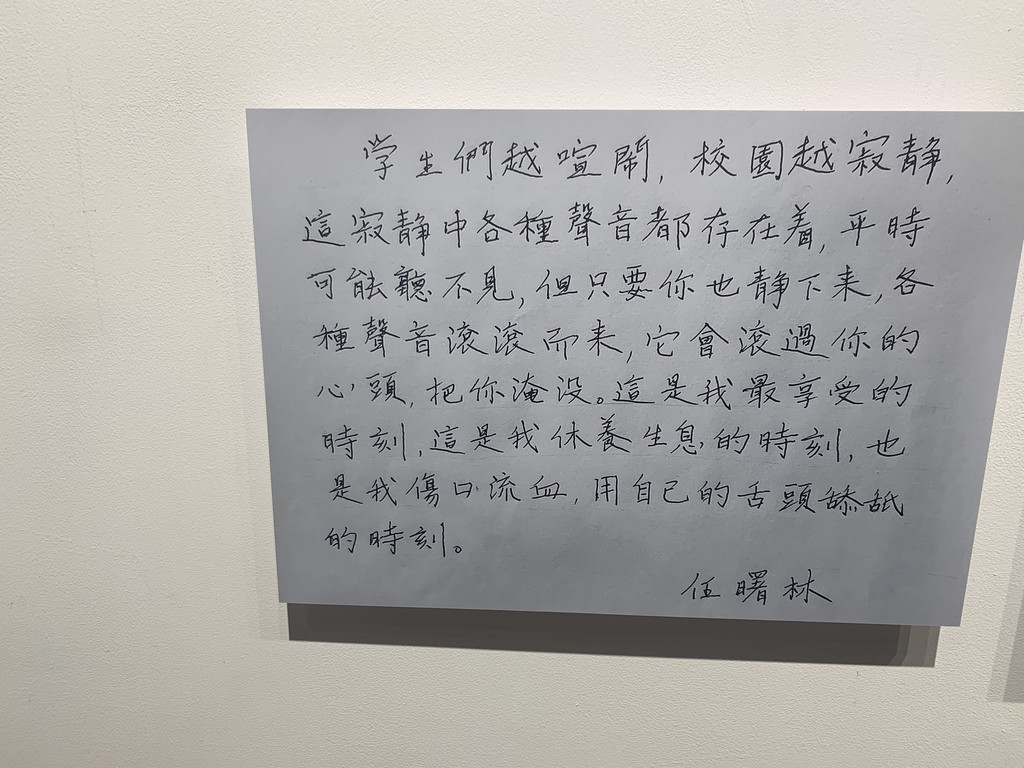 学生們越喧鬧，校園越寂静，
這寂静中各種聲音都存在着，平時
可能聽不見，但只要你也静下来，各
種聲音滾滾而来，它會滾過你的
心頭，把你淹没。這是我最享受的
時刻，這是我休養生息的時刻，也
是我傷口流血，用自己的舌頭舔舐
的時刻。
伍曙林